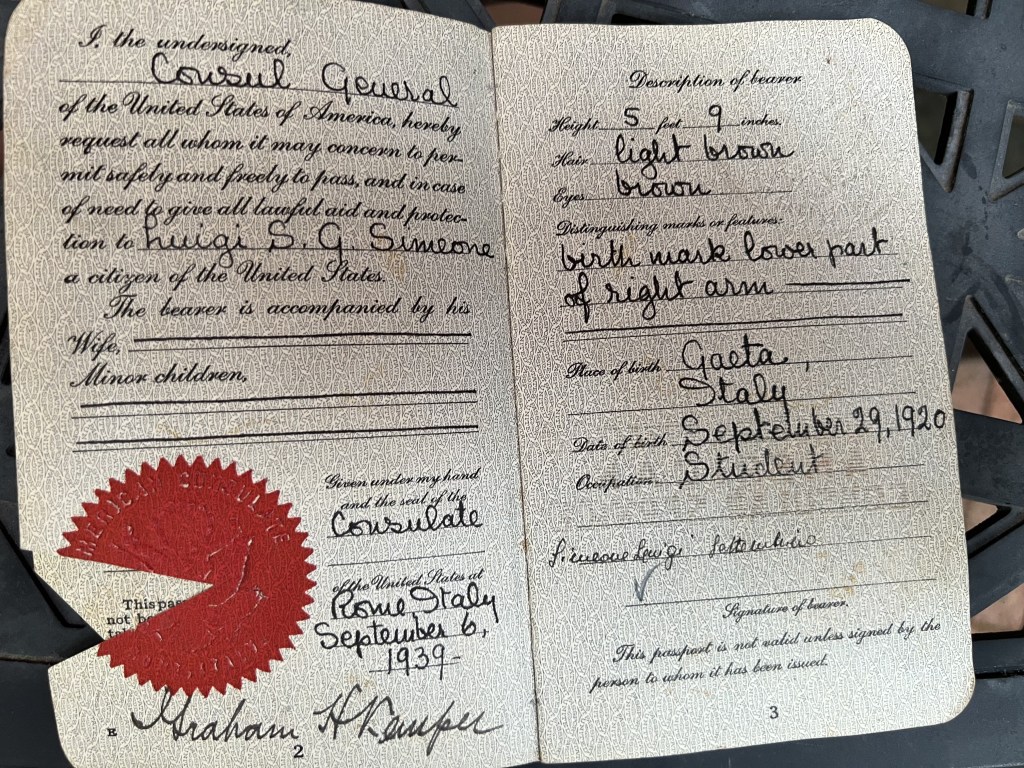 I, the undersigned,
Consul General
of the United States of America, hereby
request all whom it may concern to per-
mit safely and freely to pass, and in case
of need to give all lawful aid and protec-
tion to Luigi S. G. Simeone
a citizen of the United States.
The bearer is accompanied by his
Wife,
Minor children,
Given under my hand
and the seal of the
Consulate
of the United States at
Rome, Italy
September 6,
1939
AMERICAN CONSULATE
ROME, ITALY
This pas
not be
E
Graham H Kemper
2
Description of bearer
Height 5 feet 9 inches.
Hair light brown
Eyes brown
Distinguishing marks or features:
birth mark lower part
of right arm
Place of birth Gaeta,
Italy
Date of birth September 29, 1920
Occupation Student
Simeone Luigi Settembrino
Signature of bearer.
This passport is not valid unless signed by the
person to whom it has been issued.
3